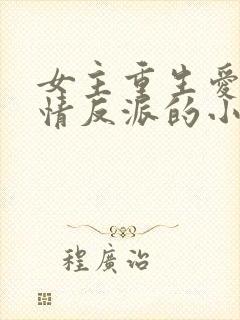 女主重生爱
情反派的小
程廣治